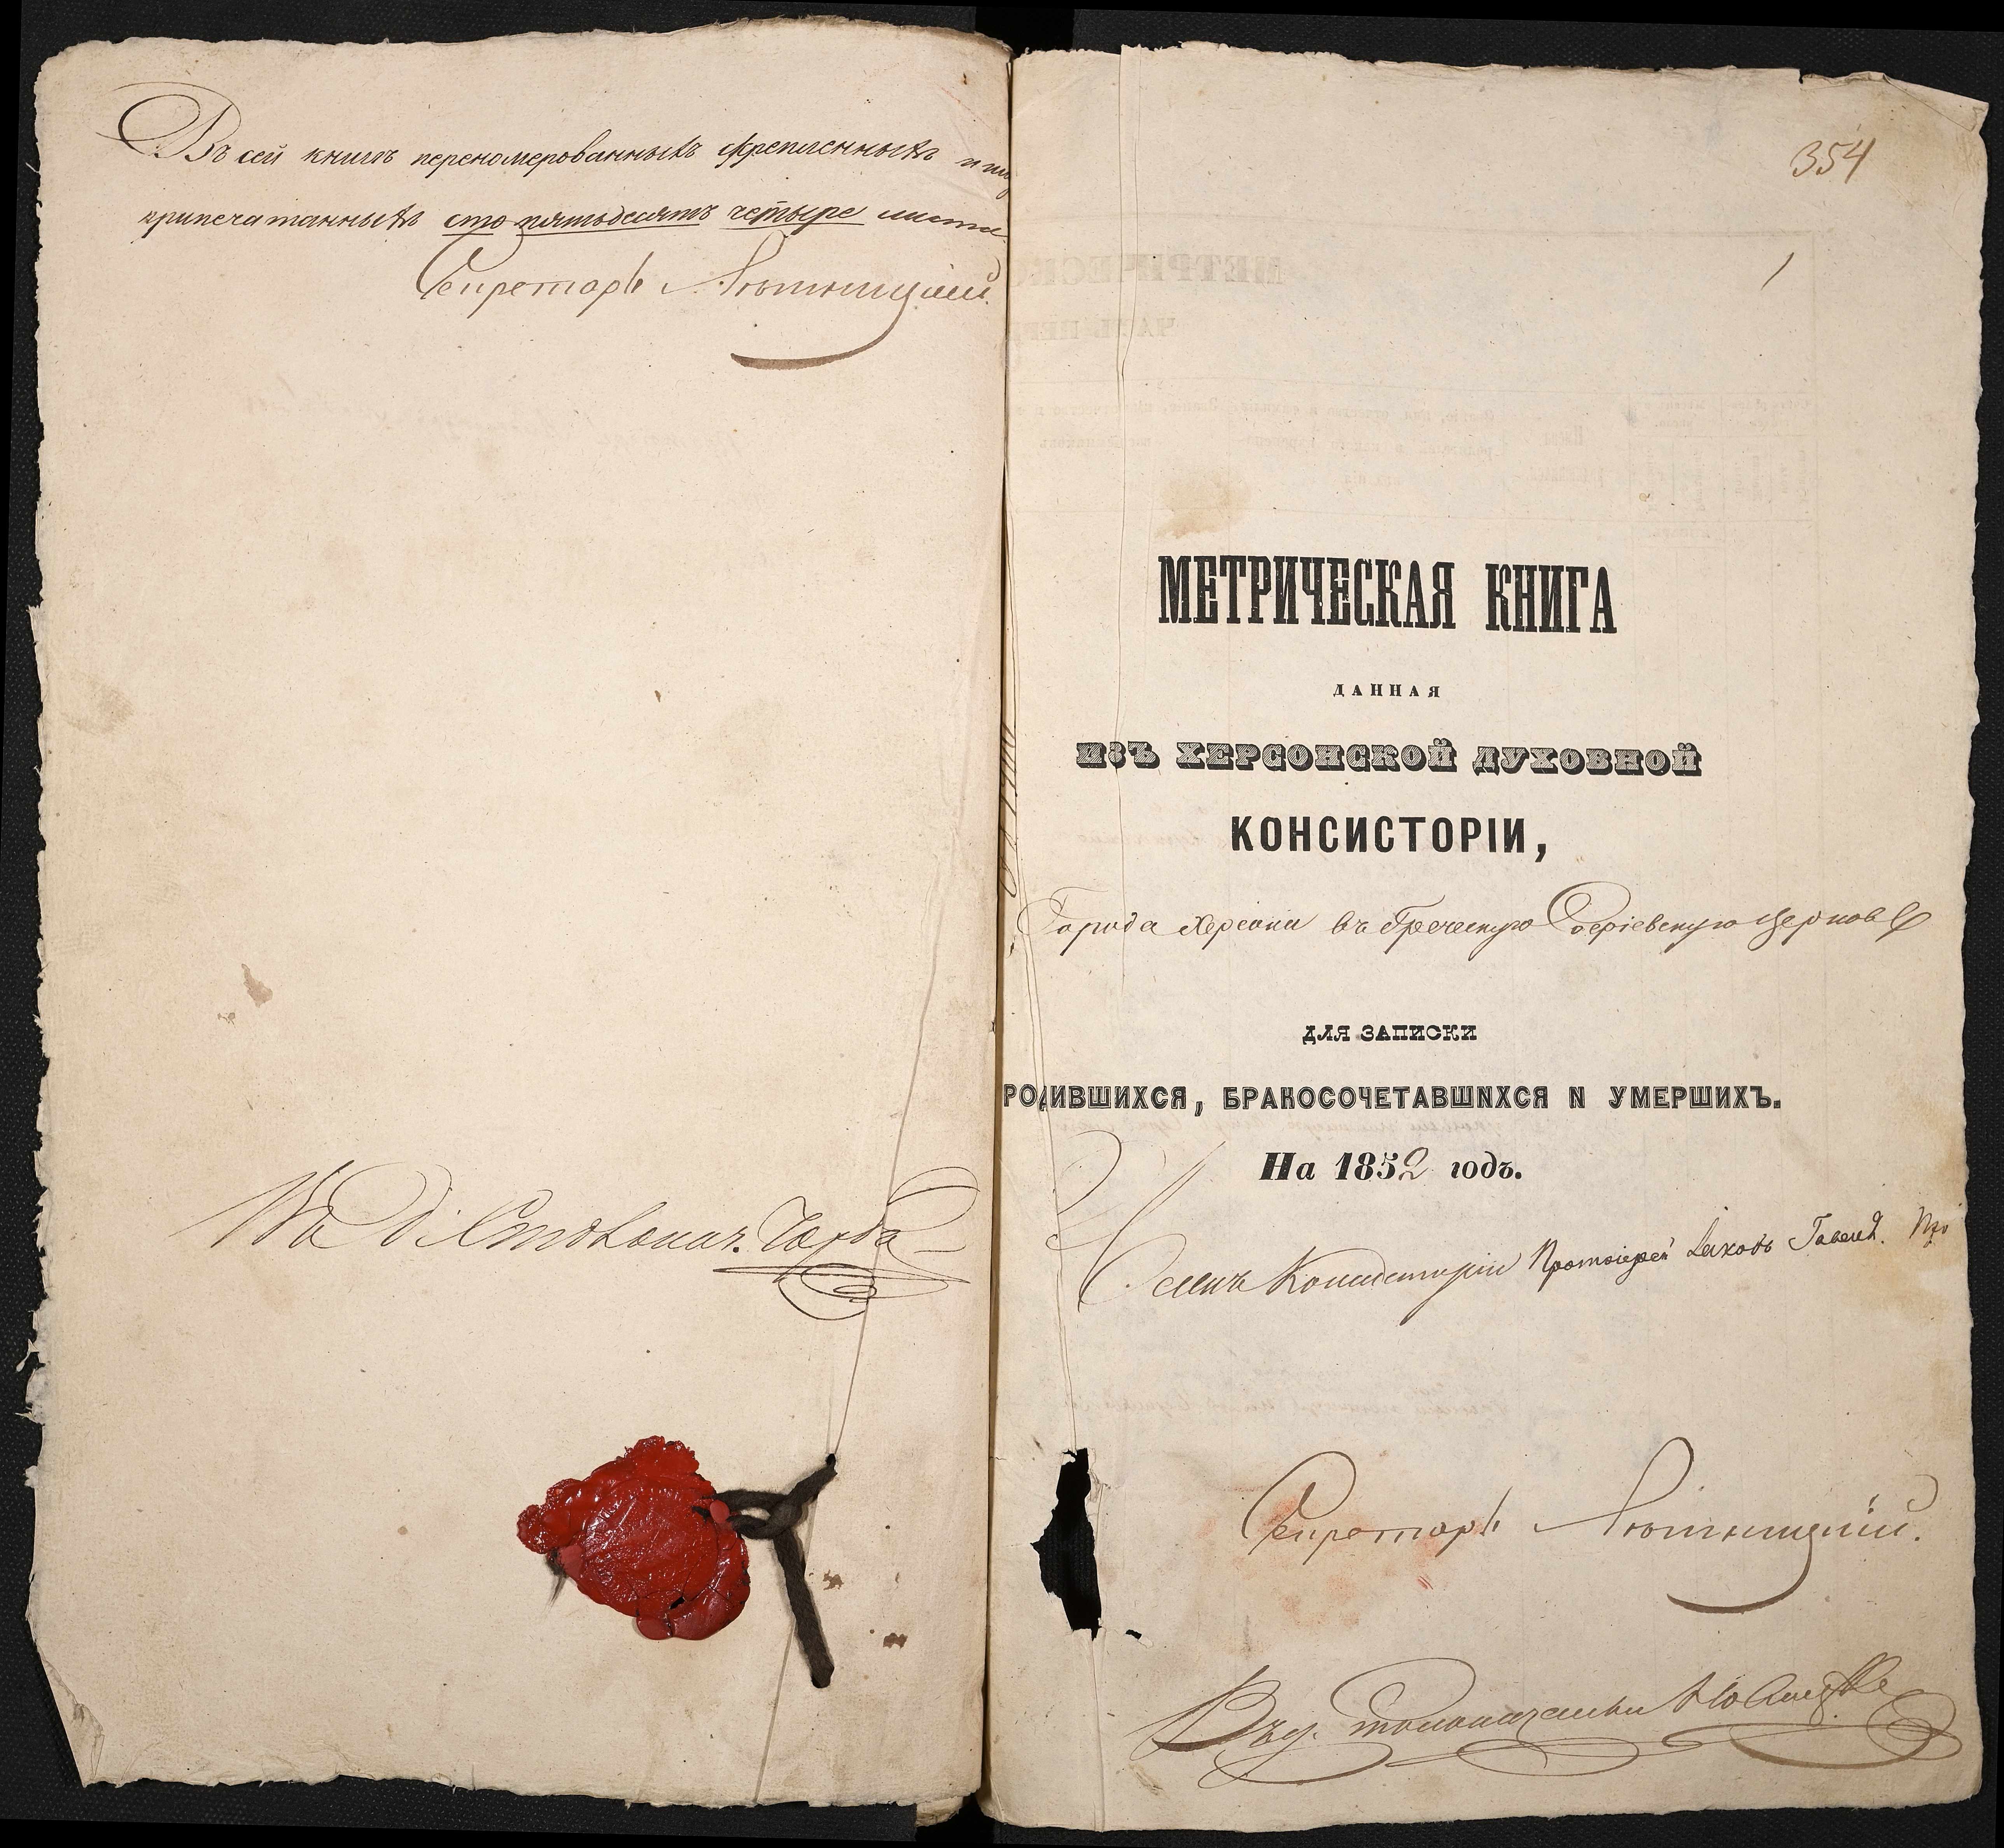 Въ сей книгѣ перенумерованныхъ скрепленныхъ и
припечатанныхъ сто пятьдесятъ четыре листа
Секретарь Лютницкій.
354
1
МЕТРИЧЕСКАЯ КНИГА
ДАННАЯ
ИЗЪ ХЕРСОНСКОЙ ДУХОВНОЙ
КОНСИСТОРІИ,
Города Херсона въ Греческую Софіевскую церковь
ДЛЯ ЗАПИСКИ
РОДИВШИХСЯ, БРАКОСОЧЕТАВШИХСЯ И УМЕРШИХЪ.
На 1852 годъ.
Членъ Консисторіи Протоіерей Іаковъ
Секретарь Лютницкій.